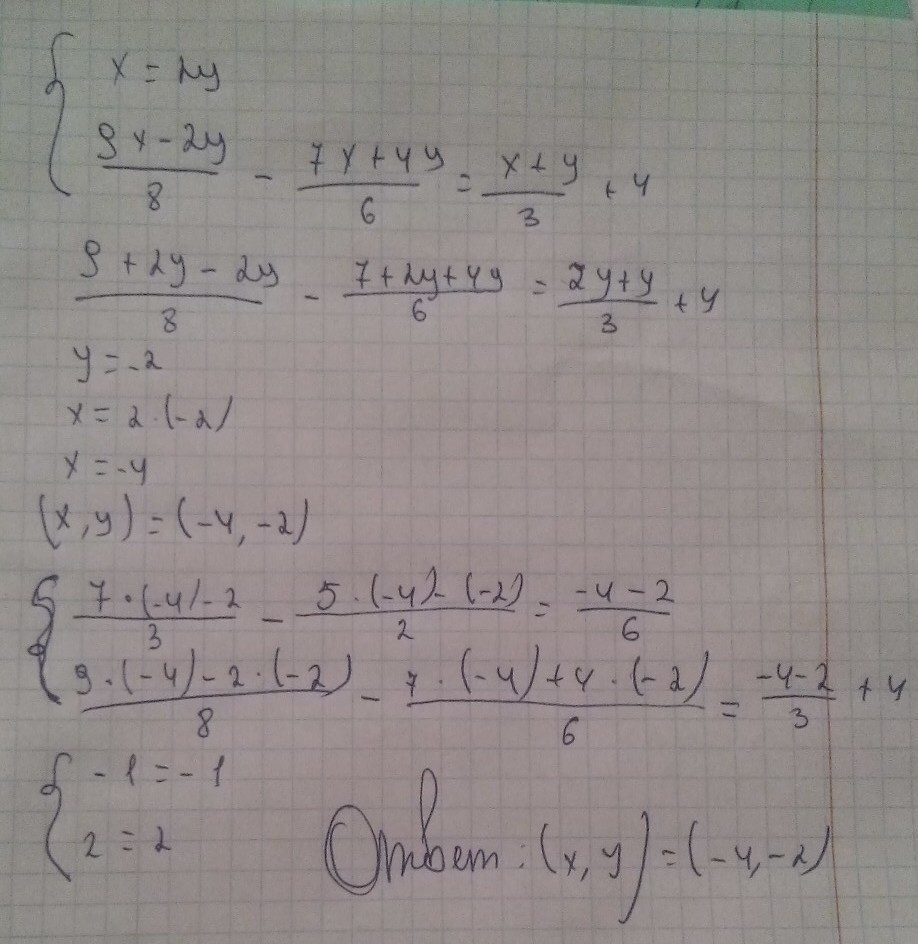 { x = 2y
(9x - 2y)/8 - (7x + 4y)/6 = (x + y)/3 + 4
(9 + 2y - 2y)/8 - (7 + 2y + 4y)/6 = (2y + y)/3 + 4
y = -2
x = 2 · (-2)
x = -4
(x, y) = (-4, -2)
{ (7 · (-4) - 2)/3 - (5 · (-4) - (-2))/2 = (-4 - 2)/6
(9 · (-4) - 2 · (-2))/8 - (7 · (-4) + 4 · (-2))/6 = (-4 - 2)/3 + 4
{ -1 = -1
2 = 2
Ответ: (x, y) = (-4, -2)